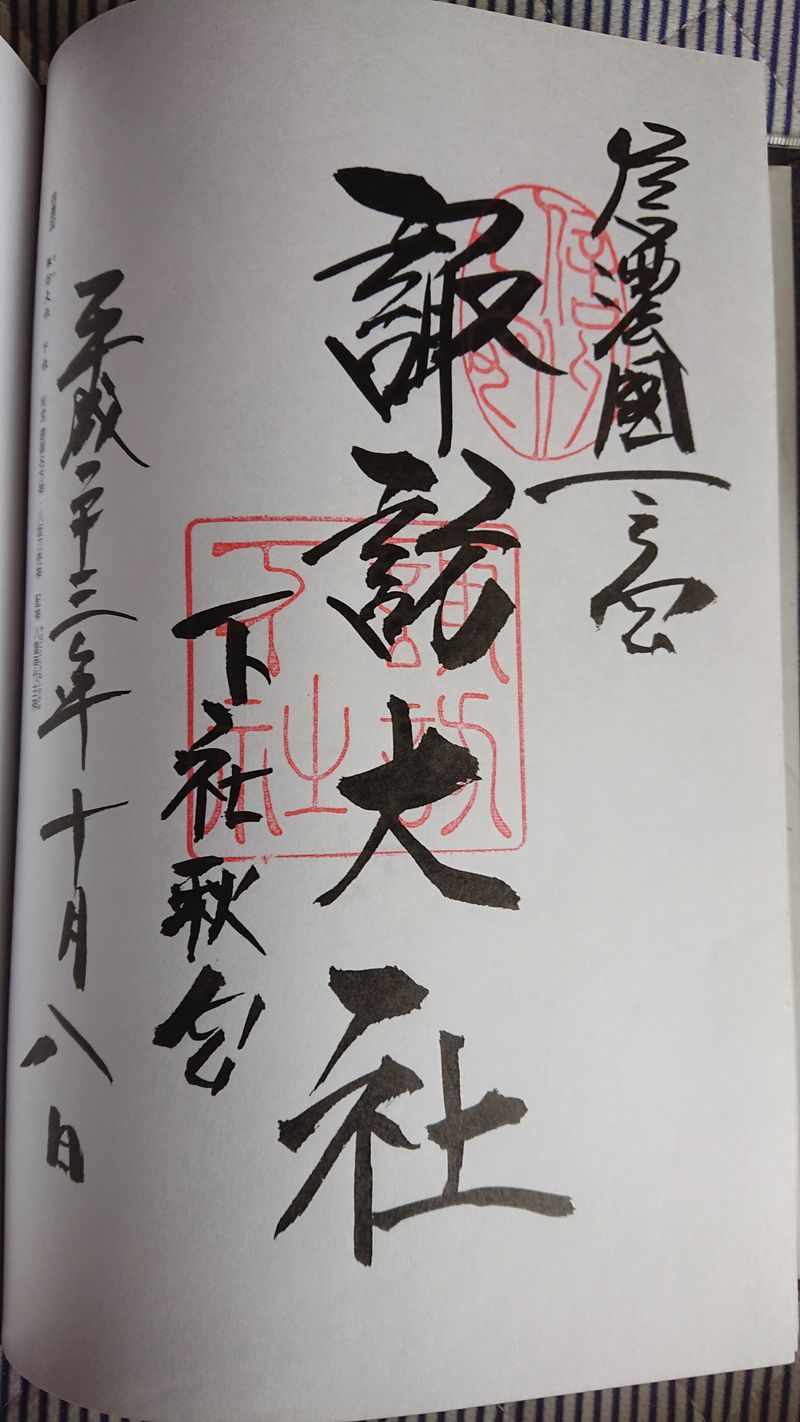 信濃國一之宮
諏訪大社
下社秋宮
平成二十三年十月八日
諏訪
之
下社